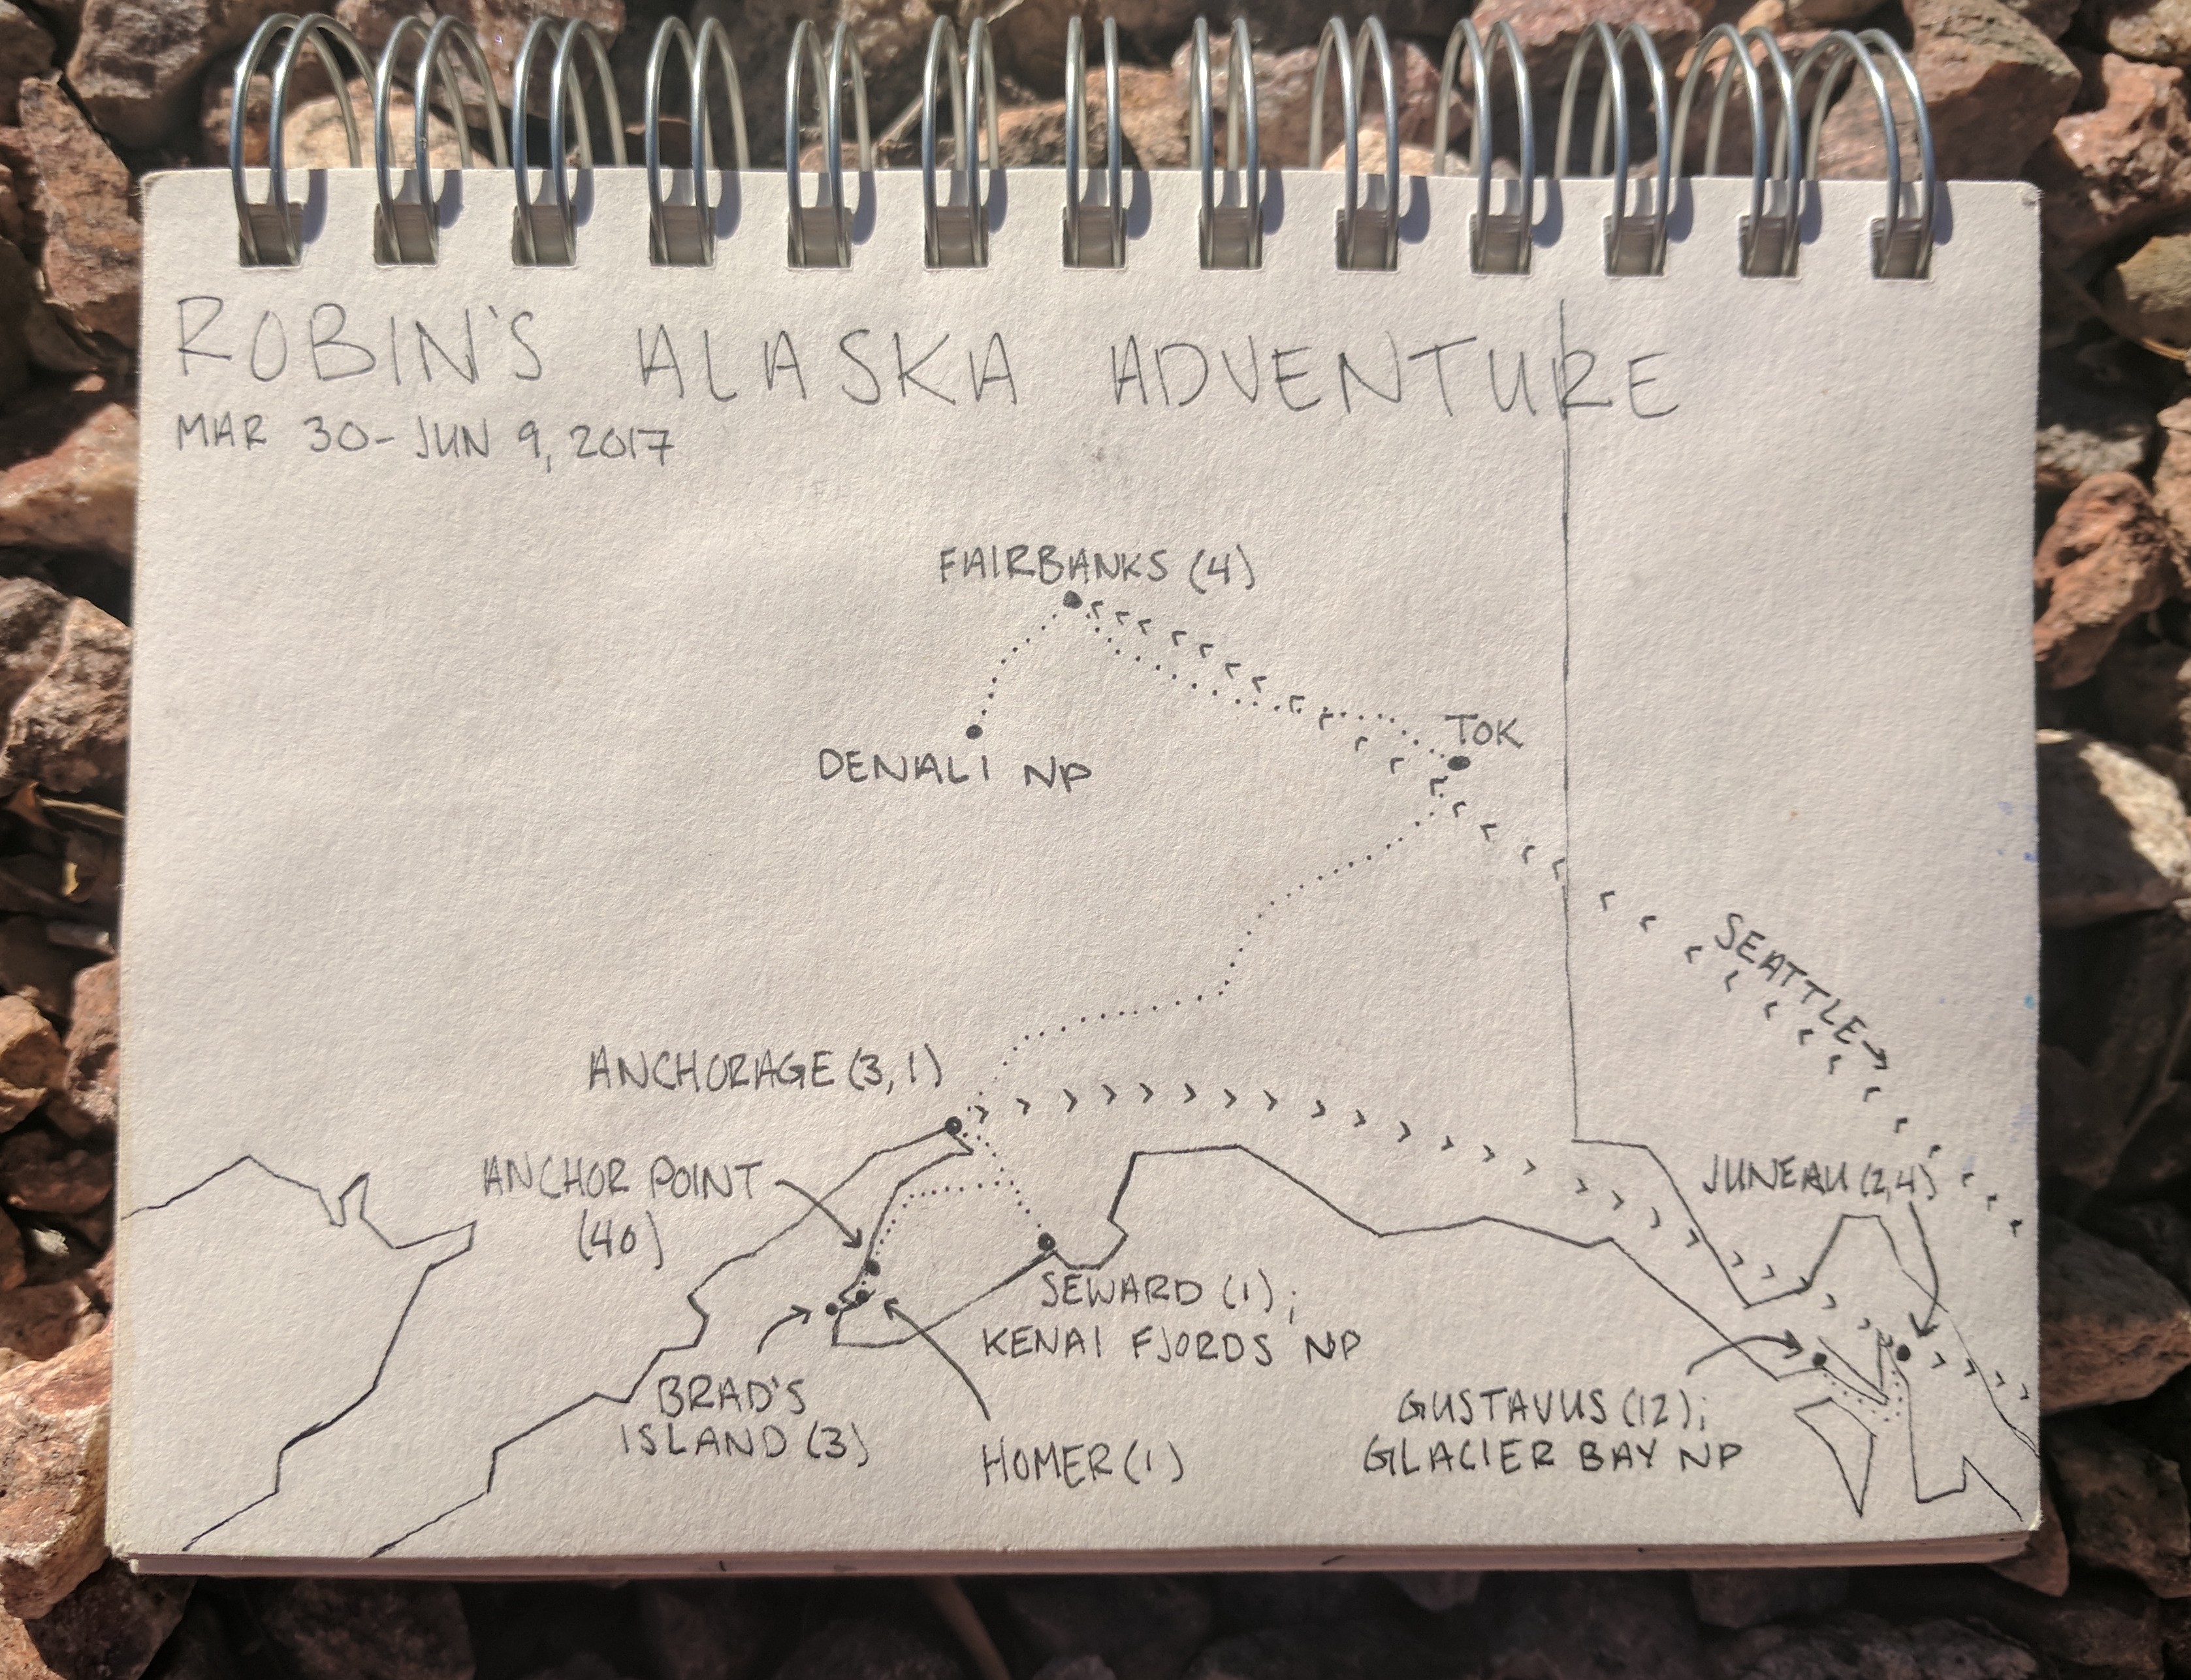 ROBIN'S ALASKA ADVENTURE
MAR 30-JUN 9, 2017
FAIRBANKS (4)
TOK
DENALI NP
SEATTLE→
ANCHORAGE (3,1)
ANCHOR POINT
(40)
JUNEAU (2,4)
SEWARD (1);
KENAI FJORDS NP
BRAD'S
ISLAND (3)
HOMER (1)
GUSTAVUS (12);
GLACIER BAY NP